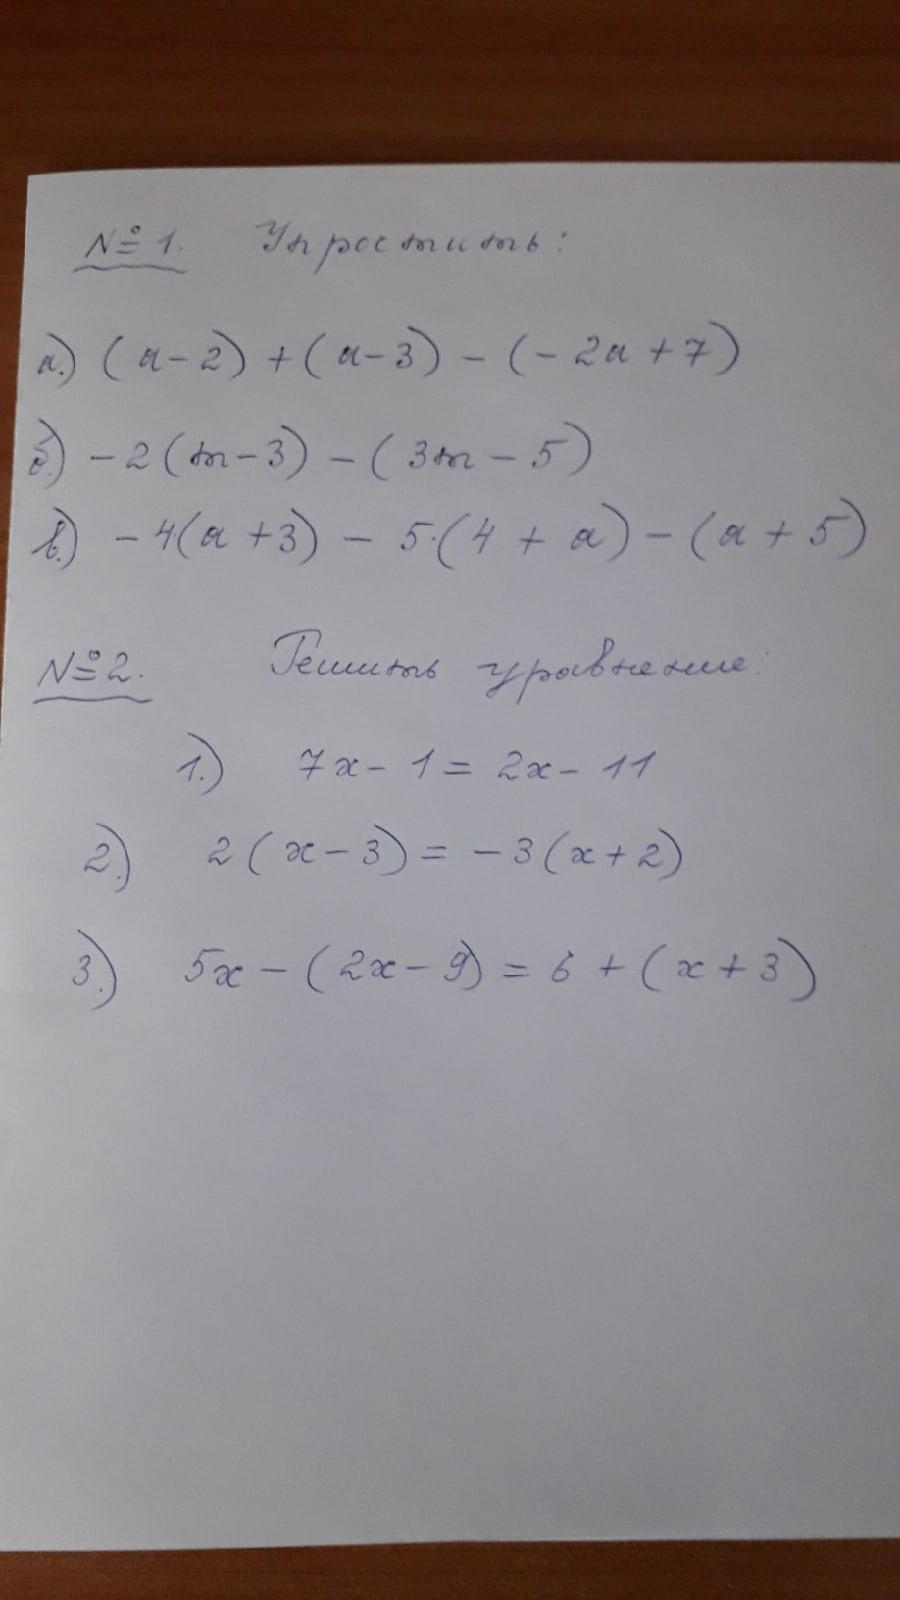 №1. Упростить:
а.) (a-2)+(a-3)-(-2a+7)
б.) -2(m-3)-(3m-5)
в.) -4(a+3)-5·(4+a)-(a+5)
№2. Решить уравнение:
1.) 7x-1=2x-11
2.) 2(x-3)=-3(x+2)
3.) 5x-(2x-9)=6+(x+3)